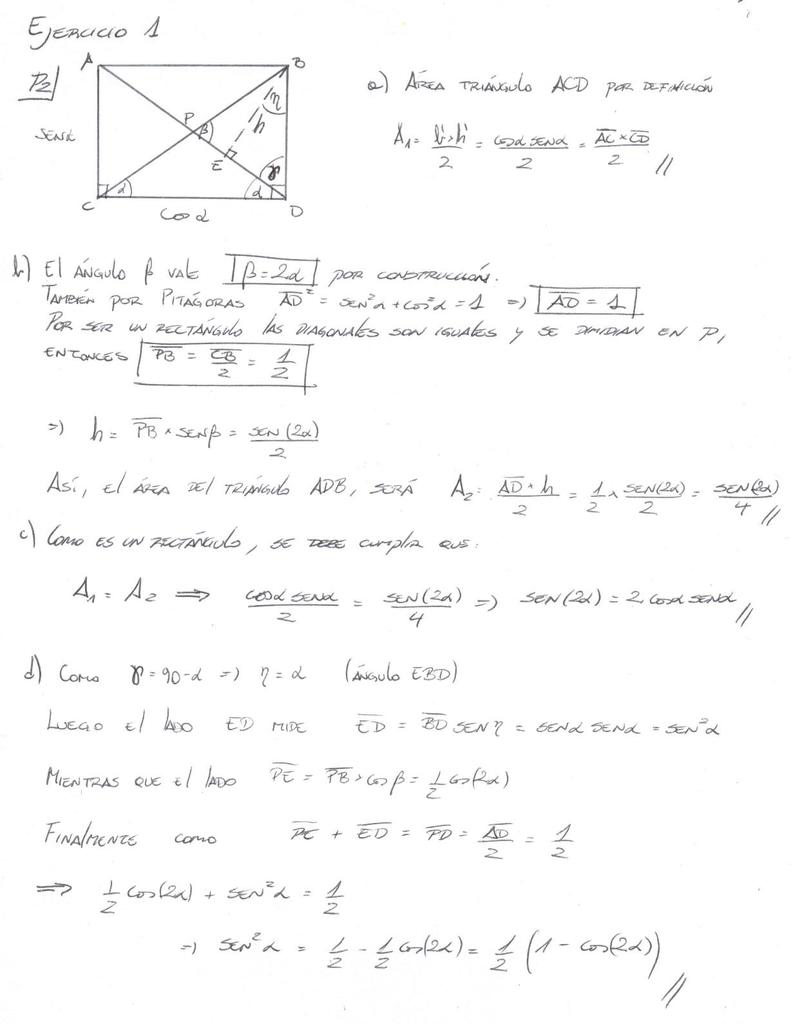 EJERCICIO 1
P2
A B
SENα
P β h η
E
γ
α α
C D
COS α
a) ÁREA TRIÁNGULO ACD POR DEFINICIÓN
A₁ = b×h/2 = cosα senα/2 = AC × CD/2 //
b) El ÁNGULO β VALE β = 2α POR CONSTRUCCIÓN.
TAMBIÉN POR PITÁGORAS AD² = SEN²α + cos²α = 1 => AD = 1
POR SER UN RECTÁNGULO LAS DIAGONALES SON IGUALES Y SE DIMIDIAN EN P,
ENTONCES PB = CB/2 = 1/2
=> h = PB × senβ = SEN (2α)/2
ASÍ, EL ÁREA DEL TRIÁNGULO ADB, SERÁ A₂ = AD × h/2 = 1/2 × SEN(2α)/2 = SEN(2α)/4 //
c) COMO ES UN RECTÁNGULO, SE DEBE CUMPLIR QUE:
A₁ = A₂ => cosα senα/2 = SEN(2α)/4 => SEN(2α) = 2 cosα senα //
d) COMO γ = 90-α => η = α (ÁNGULO EBD)
LUEGO EL LADO ED MIDE ED = BD SEN η = SENα SENα = SEN²α
MIENTRAS QUE EL LADO PE = PB × cos β = 1/2 cos(2α)
FINALMENTE COMO PE + ED = PD = AD/2 = 1/2
=> 1/2 cos(2α) + SEN²α = 1/2
=> SEN²α = 1/2 - 1/2 cos(2α) = 1/2 (1 - cos(2α)) //